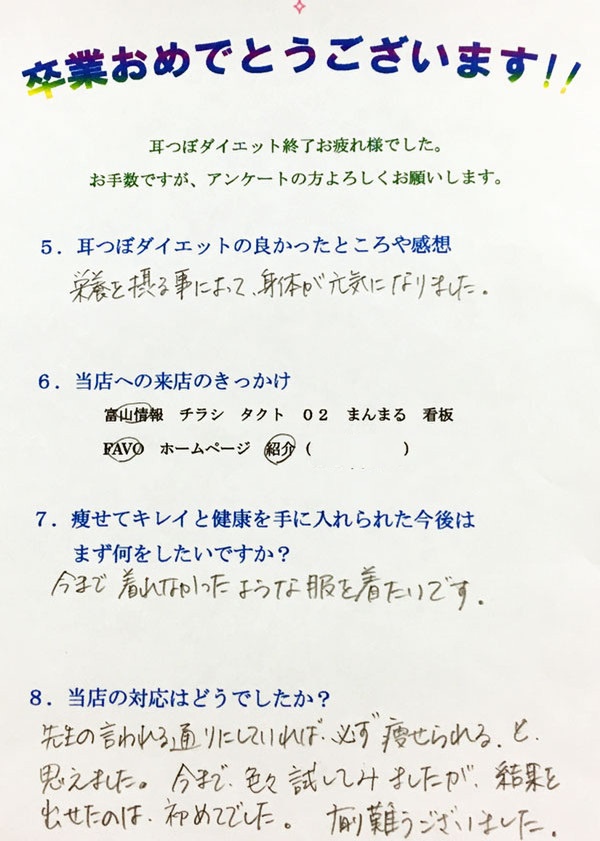 卒業おめでとうございます!!
耳つぼダイエット終了お疲れ様でした。
お手数ですが、アンケートの方よろしくお願いします。
５．耳つぼダイエットの良かったところや感想
栄養を摂る事によって、身体が元気になりました。
６．当店への来店のきっかけ
富山情報　チラシ　タクト　０２　まんまる　看板
FAVO　ホームページ　紹介（　　　　　）
７．痩せてキレイと健康を手に入れられた今後は
まず何をしたいですか？
今まで着れなかったような服を着たいです。
８．当店の対応はどうでしたか？
先生の言われる通りにしていれば、必ず痩せられる、と、
思えました。今まで、色々試してみましたが、結果を
出せたのは、初めてでした。有り難うございました。